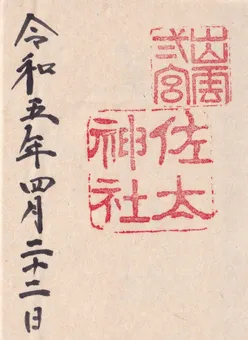 出雲
弐宮
佐太
神社
令和五年四月二十二日